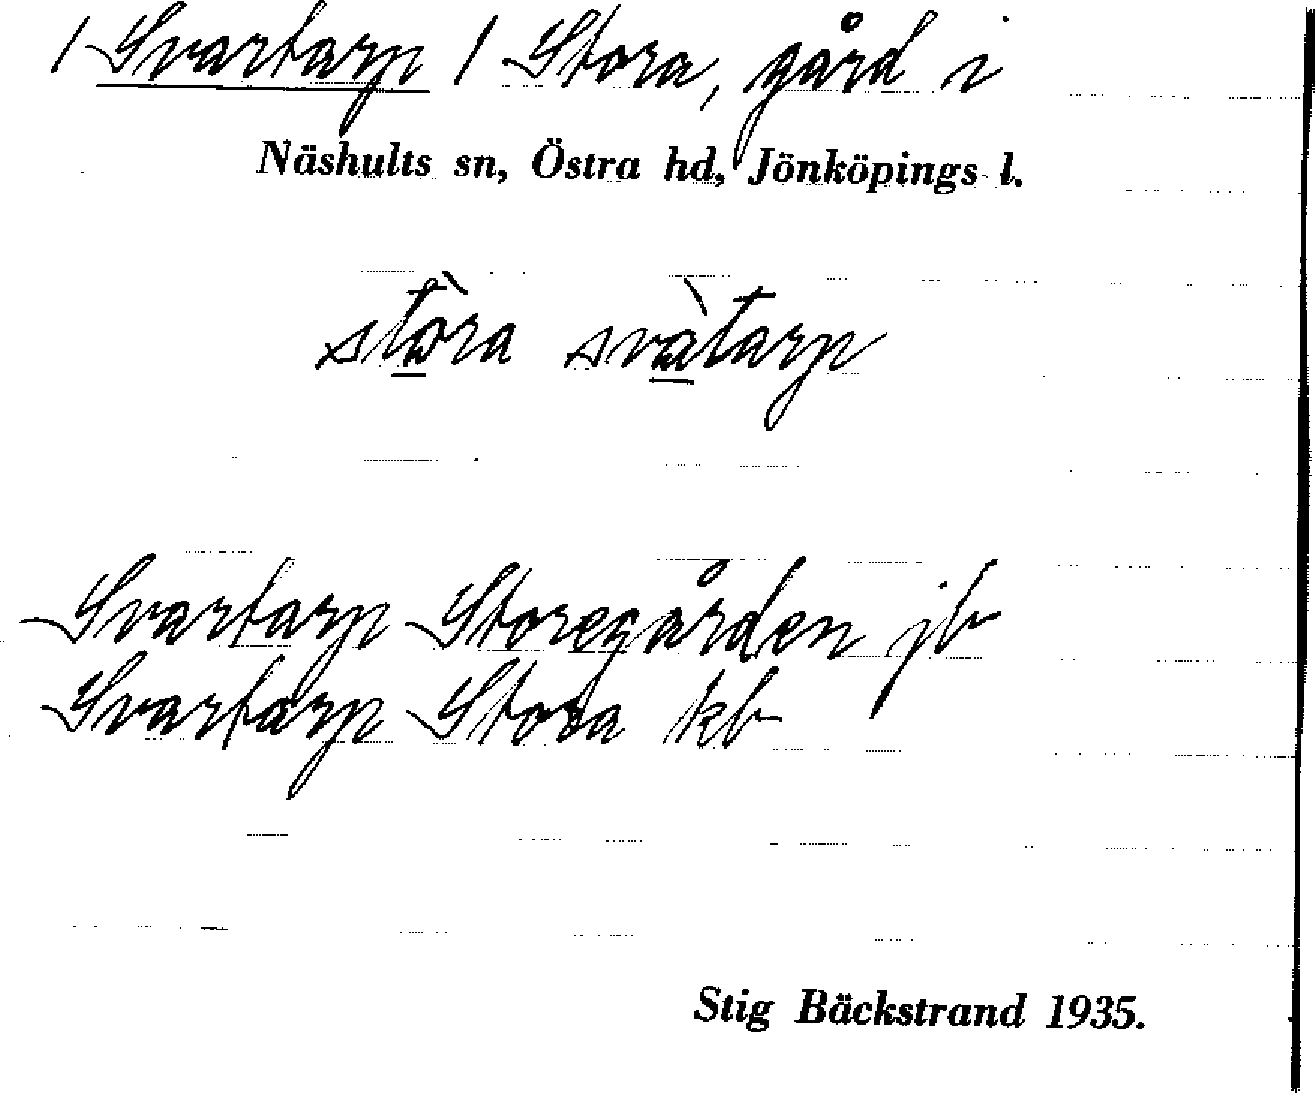 / Svartarp / Stora, gård i
Näshults sn, Östra hd, Jönköpings l.
stò̠ra svà̠tarp
Svartarp Storegården jb
Svartarp Stora kb
Stig Bäckstrand 1935.